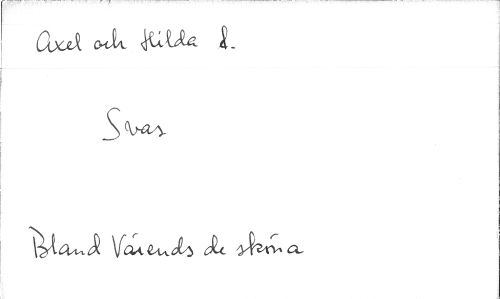 Axel och Hilda S.
Svas
Bland Värends de sköna